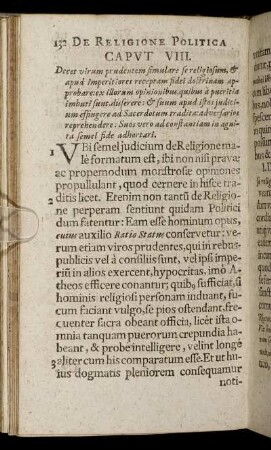 132 DE RELIGIONE POLITICA
CAPVT VIII.
Docet virum prudentem simulare se religiosum, &
apud imperitiores receptam fidei doctrinam ap-
probare: ex illorum opinionibus quibus à pueritia
imbuti sunt disserere: & suum apud istos judici-
um effingere ad Sacerdotum tradita: adversarios
reprehendere: Suos verò ad constantiam in agni-
ta semel fide adhortari.
1 VBi semel judicium de Religione ma-
lè formatum est, ibi non nisi pravæ:
ac propemodum monstrosæ opiniones
propullulant, quod cernere in hisce tra-
2 ditis licet. Etenim non tantũ de Religio-
ne perperam sentiunt quidam Politici
dum fatentur: Eam esse hominum opus,
cuius auxilio Ratio Status conservetur: ve-
rum etiam viros prudentes, qui in rebus-
publicis vel à consiliis sunt, vel ipsi imperi-
um in alios exercent, hypocritas, imò A-
theos efficere conantur; quibꝰ sufficiat, si
hominis religiosi personam induant, fu-
cum faciant vulgo, se pios ostendant, fre-
quenter sacra obeant officia, licèt ista o-
mnia tanquam puerorum crepundia ha-
beant, & probe intelligere, velint longè
3 aliter cum his comparatum esse. Et ut hu-
ius dogmatis pleniorem consequamur
noti-